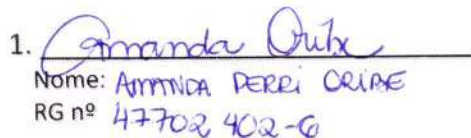 1. Amanda Oribe
Nome: AMANDA PERRI ORIBE
RG nº 47702 402-6